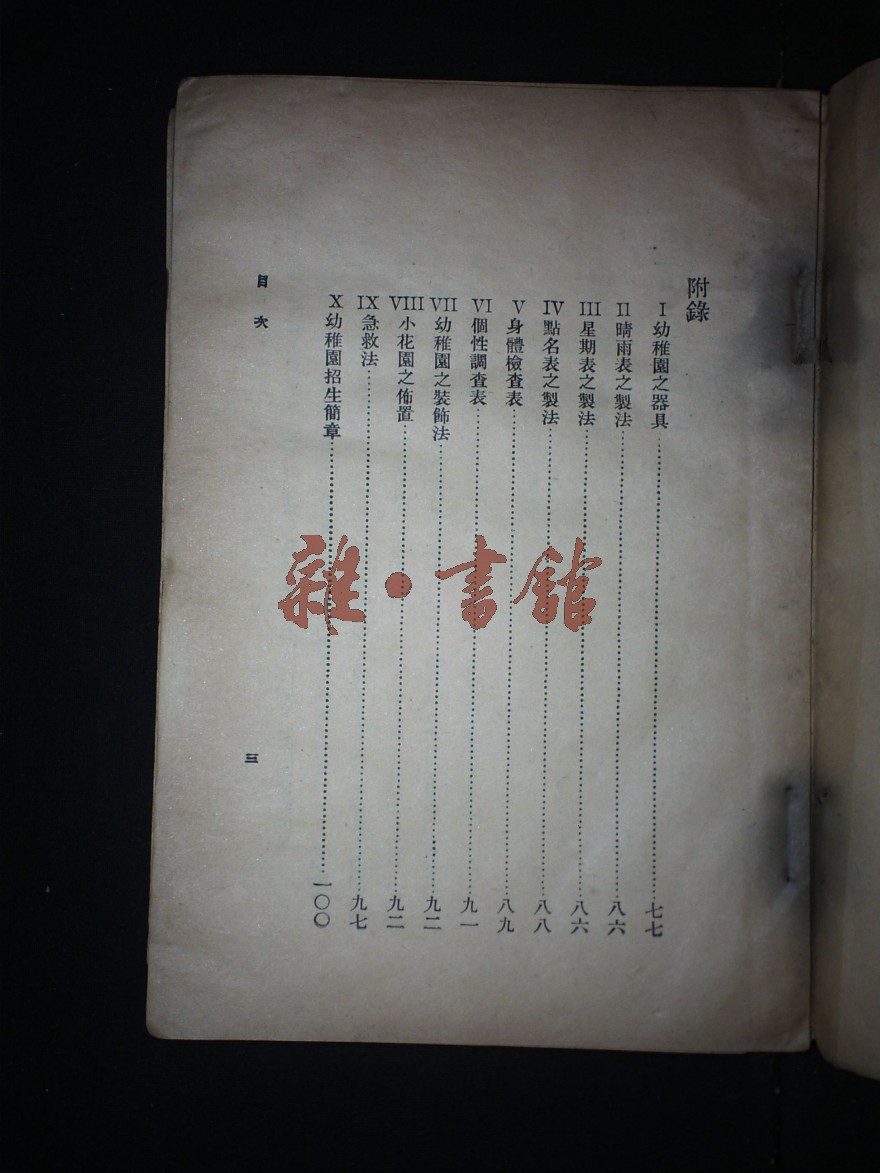 附錄
I 幼稚園之器具……七七
II 晴雨表之製法……八六
III 星期表之製法……八六
IV 點名表之製法……八八
V 身體檢查表……八九
VI 個性調查表……九一
VII 幼稚園之裝飾法……九二
VIII 小花園之佈置……九二
IX 急救法……九七
X 幼稚園招生簡章……一〇〇
目次
三
雜·書館